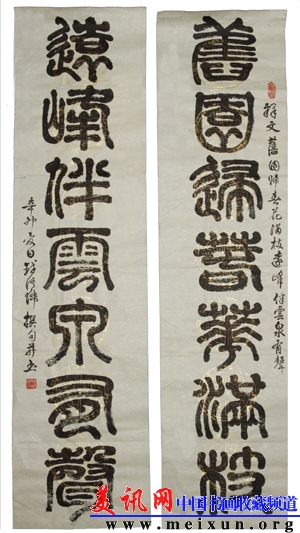 舊園歸春華滿枝
釋文 舊園歸春花滿枝遠峰伴雲泉有聲
遠峰伴雲泉有聲
辛卯夏日 撰句并書
美讯网 中国书画收藏频道
www.meixun.org